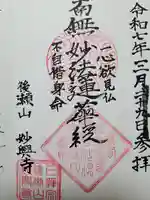 令和七年三月廿九日参拝
一心欲見仏
南無妙法蓮華経
不自惜身命
後瀬山 妙興寺